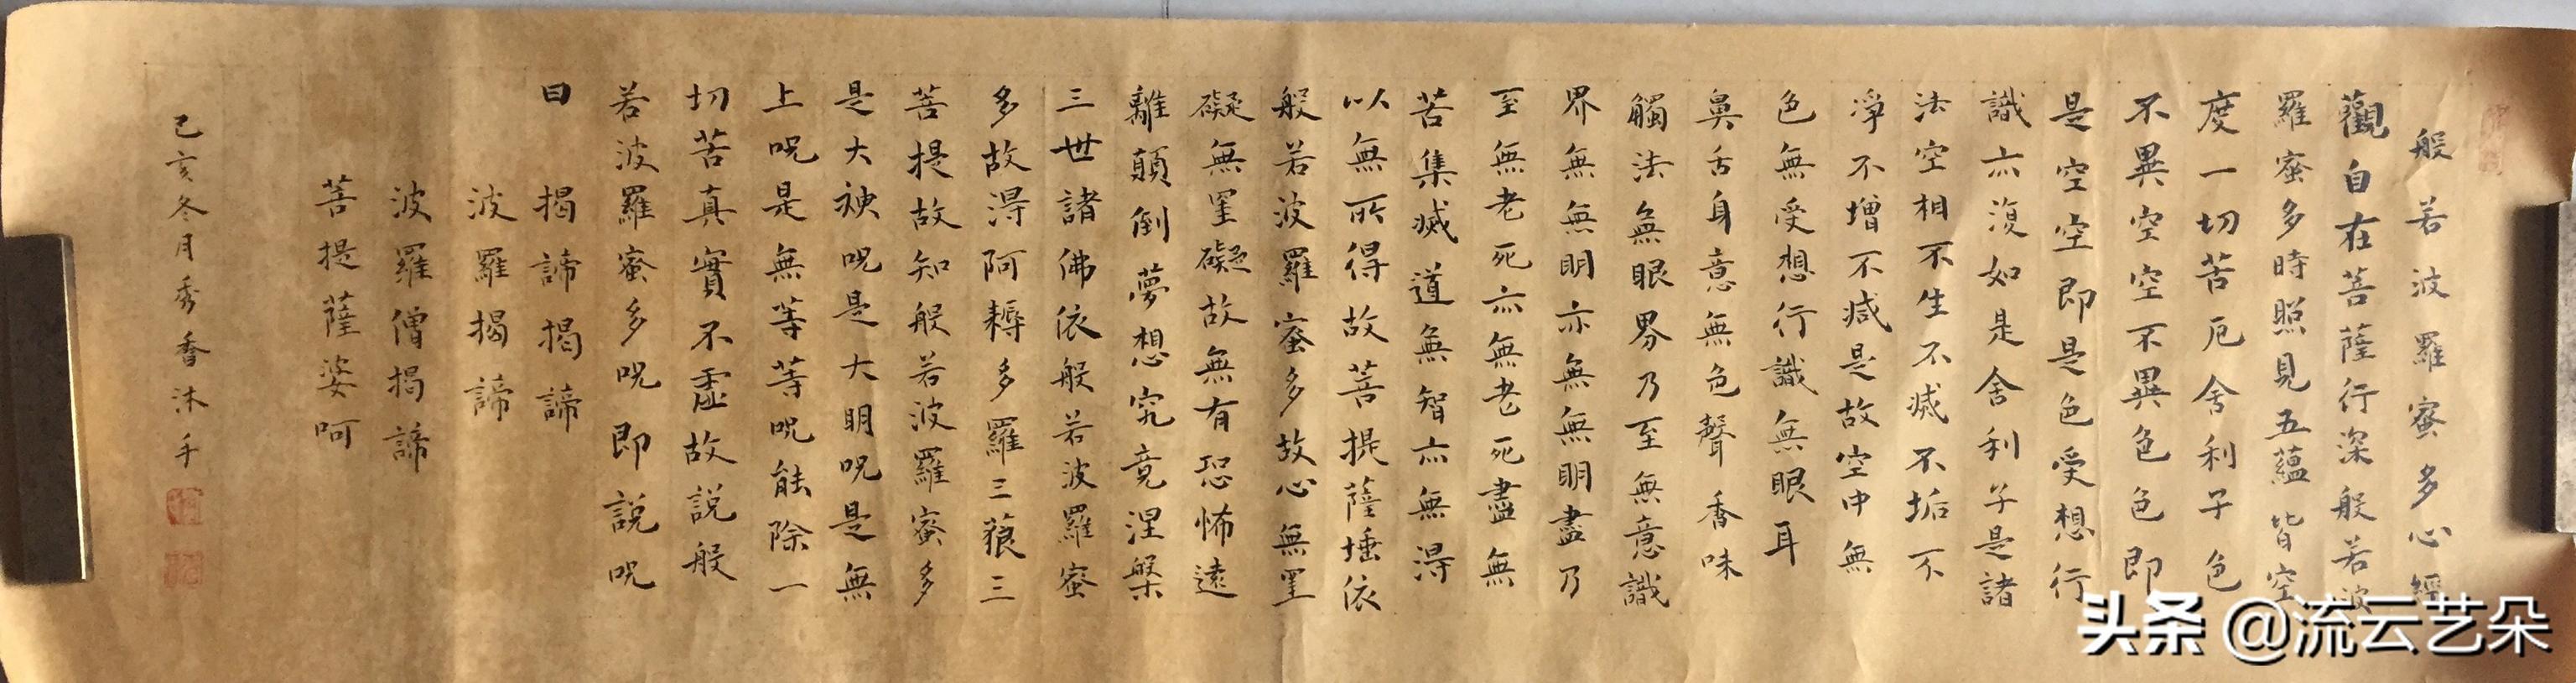 般若波羅蜜多心經
觀自在菩薩行深般若波
羅蜜多時照見五蘊皆空
度一切苦厄舍利子色
不異空空不異色色即
是空空即是色受想行
識亦復如是舍利子是諸
法空相不生不滅不垢不
淨不增不減是故空中無
色無受想行識無眼耳
鼻舌身意無色聲香味
觸法無眼界乃至無意識
界無無明亦無無明盡乃
至無老死亦無老死盡無
苦集滅道無智亦無得
以無所得故菩提薩埵依
般若波羅蜜多故心無罣
礙無罣礙故無有恐怖遠
離顛倒夢想究竟涅槃
三世諸佛依般若波羅蜜
多故得阿耨多羅三藐三
菩提故知般若波羅蜜多
是大神咒是大明咒是無
上咒是無等等咒能除一
切苦真實不虛故說般
若波羅蜜多咒即說咒
曰 揭諦揭諦
波羅揭諦
波羅僧揭諦
菩提薩婆呵
己亥冬月秀香沐手
头条 @流云艺朵